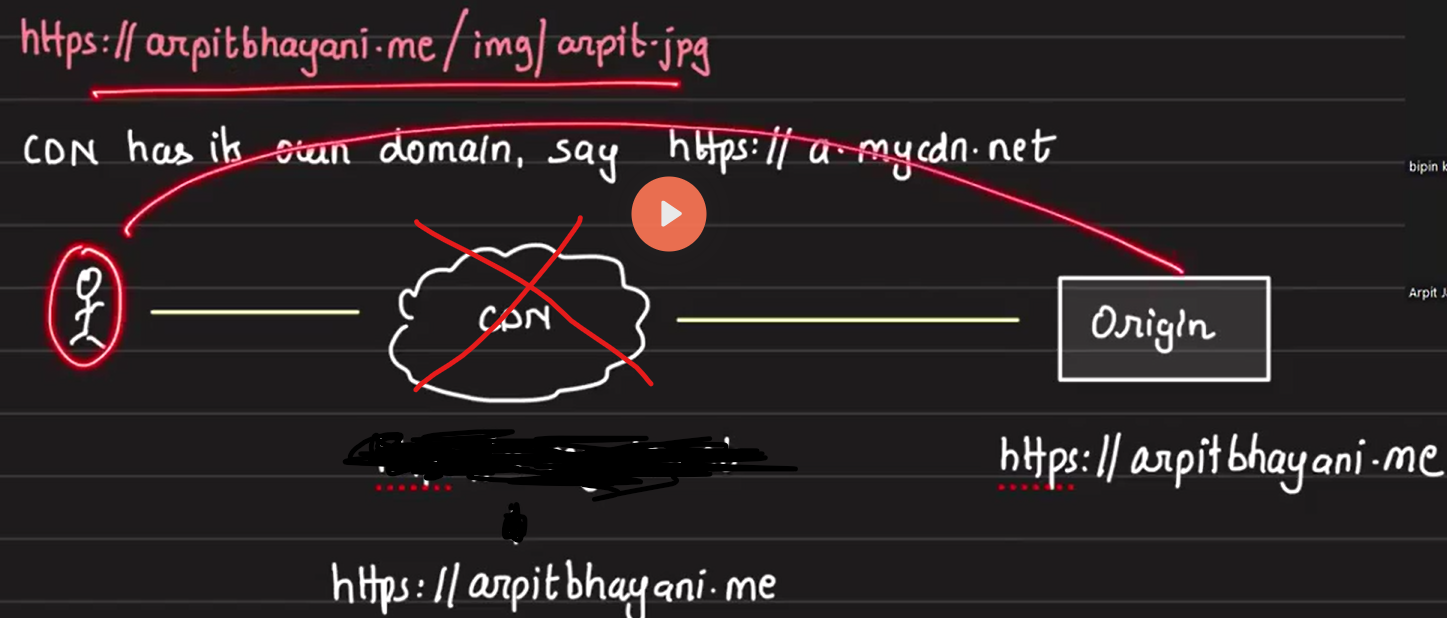 https://arpitbhayani.me/img/arpit.jpg
CDN has its own domain, say https://a.mycdn.net
bipin k
CDN
Origin
Arpit J
https://arpitbhayani.me
https://arpitbhayani.me